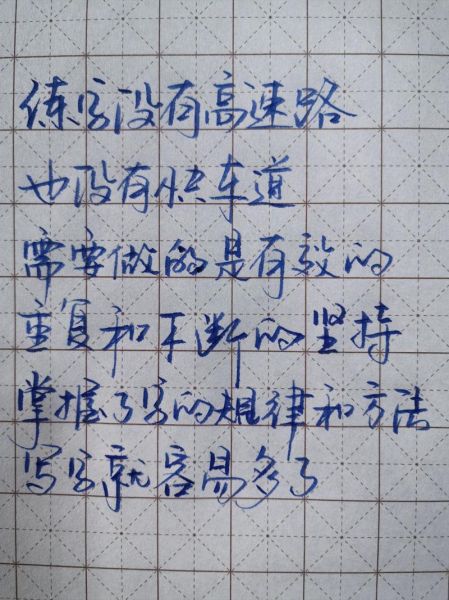 练字没有高速路
也没有快车道
需要做的是有效的
重复和不断的坚持
掌握了字的规律和方法
写字就容易多了